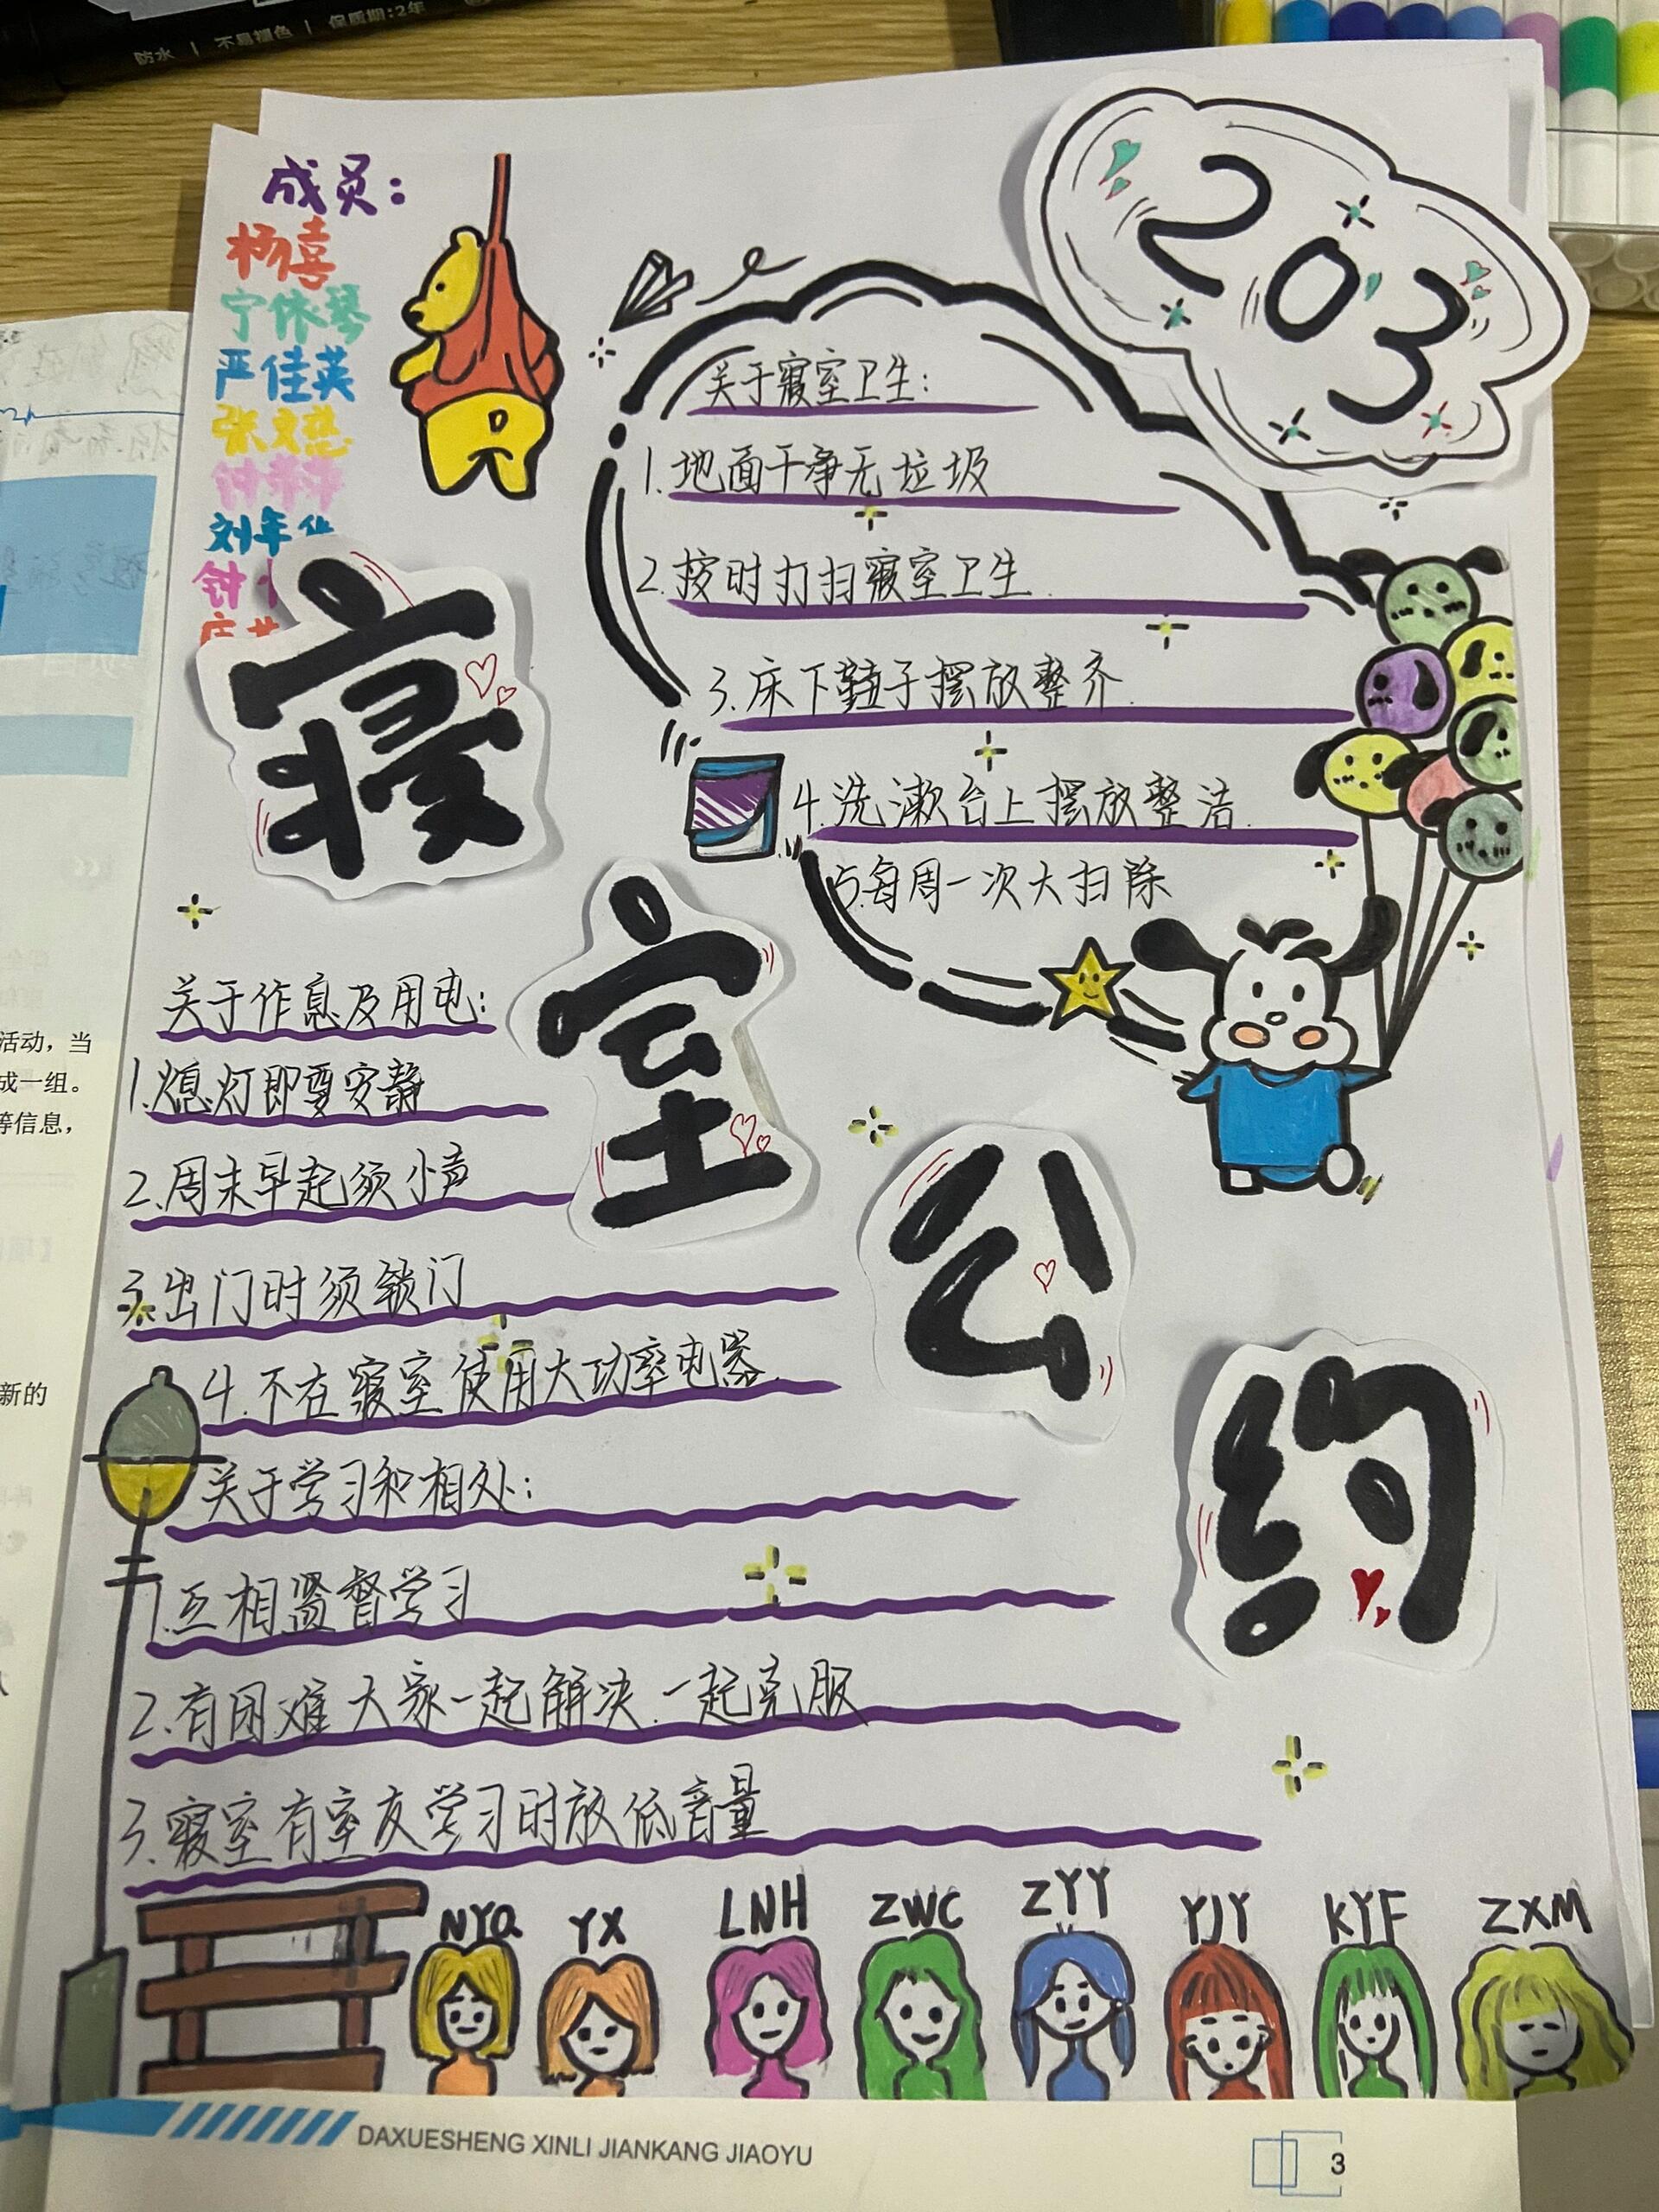 防水 | 不易褪色 | 保质期:2年
203
成员:
杨喜
宁休琴
严佳英
张文慈
刘年
钟
寝室公约
关于寝室卫生:
1.地面干净无垃圾
2.按时打扫寝室卫生.
3.床下鞋子摆放整齐.
4.洗漱台上摆放整洁.
5.每周一次大扫除
关于作息及用电:
1.熄灯即要安静
2.周末早起须小声
3.出门时须锁门
4.不在寝室使用大功率电器.
关于学习和相处:
1.互相监督学习
2.有困难大家一起解决.一起克服
3.寝室有室友学习时放低音量
NYQ YX LNH ZWC ZYY YJY KYF ZXM
活动，当
成一组。
等信息，
新的
DAXUESHENG XINLI JIANKANG JIAOYU
3